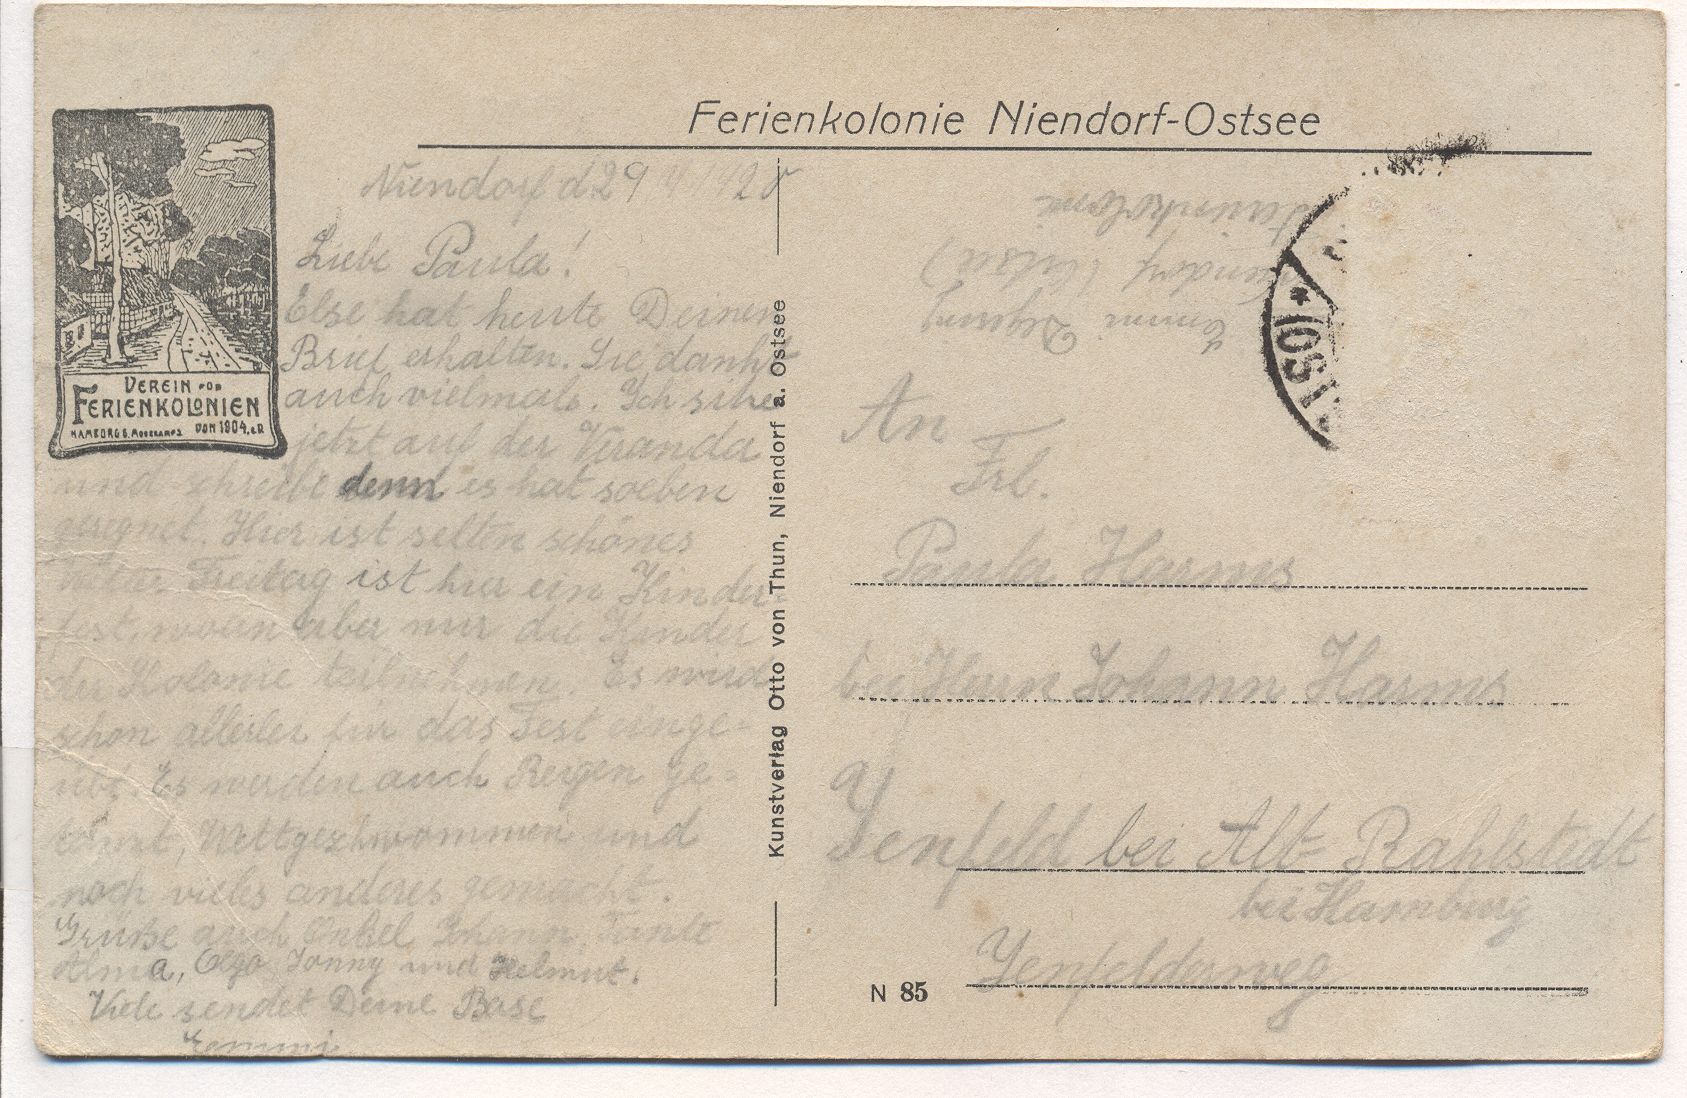 Ferienkolonie Niendorf-Ostsee
VEREIN FÜR
FERIENKOLONIEN
VON 1904. e.V.
Niendorf d. 29
Liebe Paula!
Else hat heute Deinen
Brief erhalten. Sie dankt
auch vielmals. Ich sitze
jetzt auf der Veranda
und schreibe denn es hat soeben
geregnet. Hier ist selten schönes
Wetter. Freitag ist hier ein Kinder-
fest, woran aber nur die Kinder
der Kolonie teilnehmen. Es wird
schon allerlei für das Fest einge-
übt. Es werden auch Reigen ge-
tanzt, Wettgeschwommen und
noch vieles anderes gemacht.
Grüße auch Onkel Johann, Tante
Alma, Olga, Jonny und Helmut.
Viele sendet Deine Base
Emmi
Kunstverlag Otto von Thun, Niendorf a. Ostsee
Emmi
Niendorf (Ostsee)
Ferienkolonie
(OST
An
Frl.
Paula Harms
bei Herrn Johann Harms
Jenfeld bei Alt-Rahlstedt
bei Hamburg
Jenfelderweg
N 85